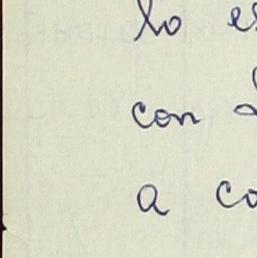 lo e
con
a co